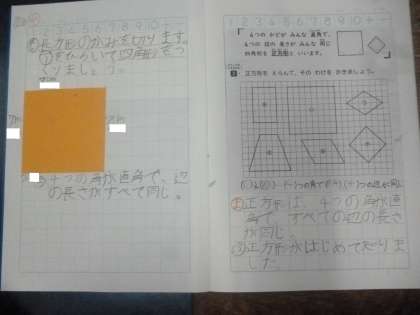 1 2 3 4 5 6 7 8 9 10
長方形のかみを切ります。
をひらいて四角形をつ
くりましょう。
4つの角が直角で、辺
の長さがすべて同じ。
1 2 3 4 5 6 7 8 9 10
4つの かどが みんな 直角で、
4つの 辺の 長さが みんな 同じ
四角形を 正方形と いいます。
正方形を えらんで、その わけを かきましょう。
正方形は、4つの角が直
角で、すべての辺の長さ
が同じ。
正方形がはじめて知りま
した。